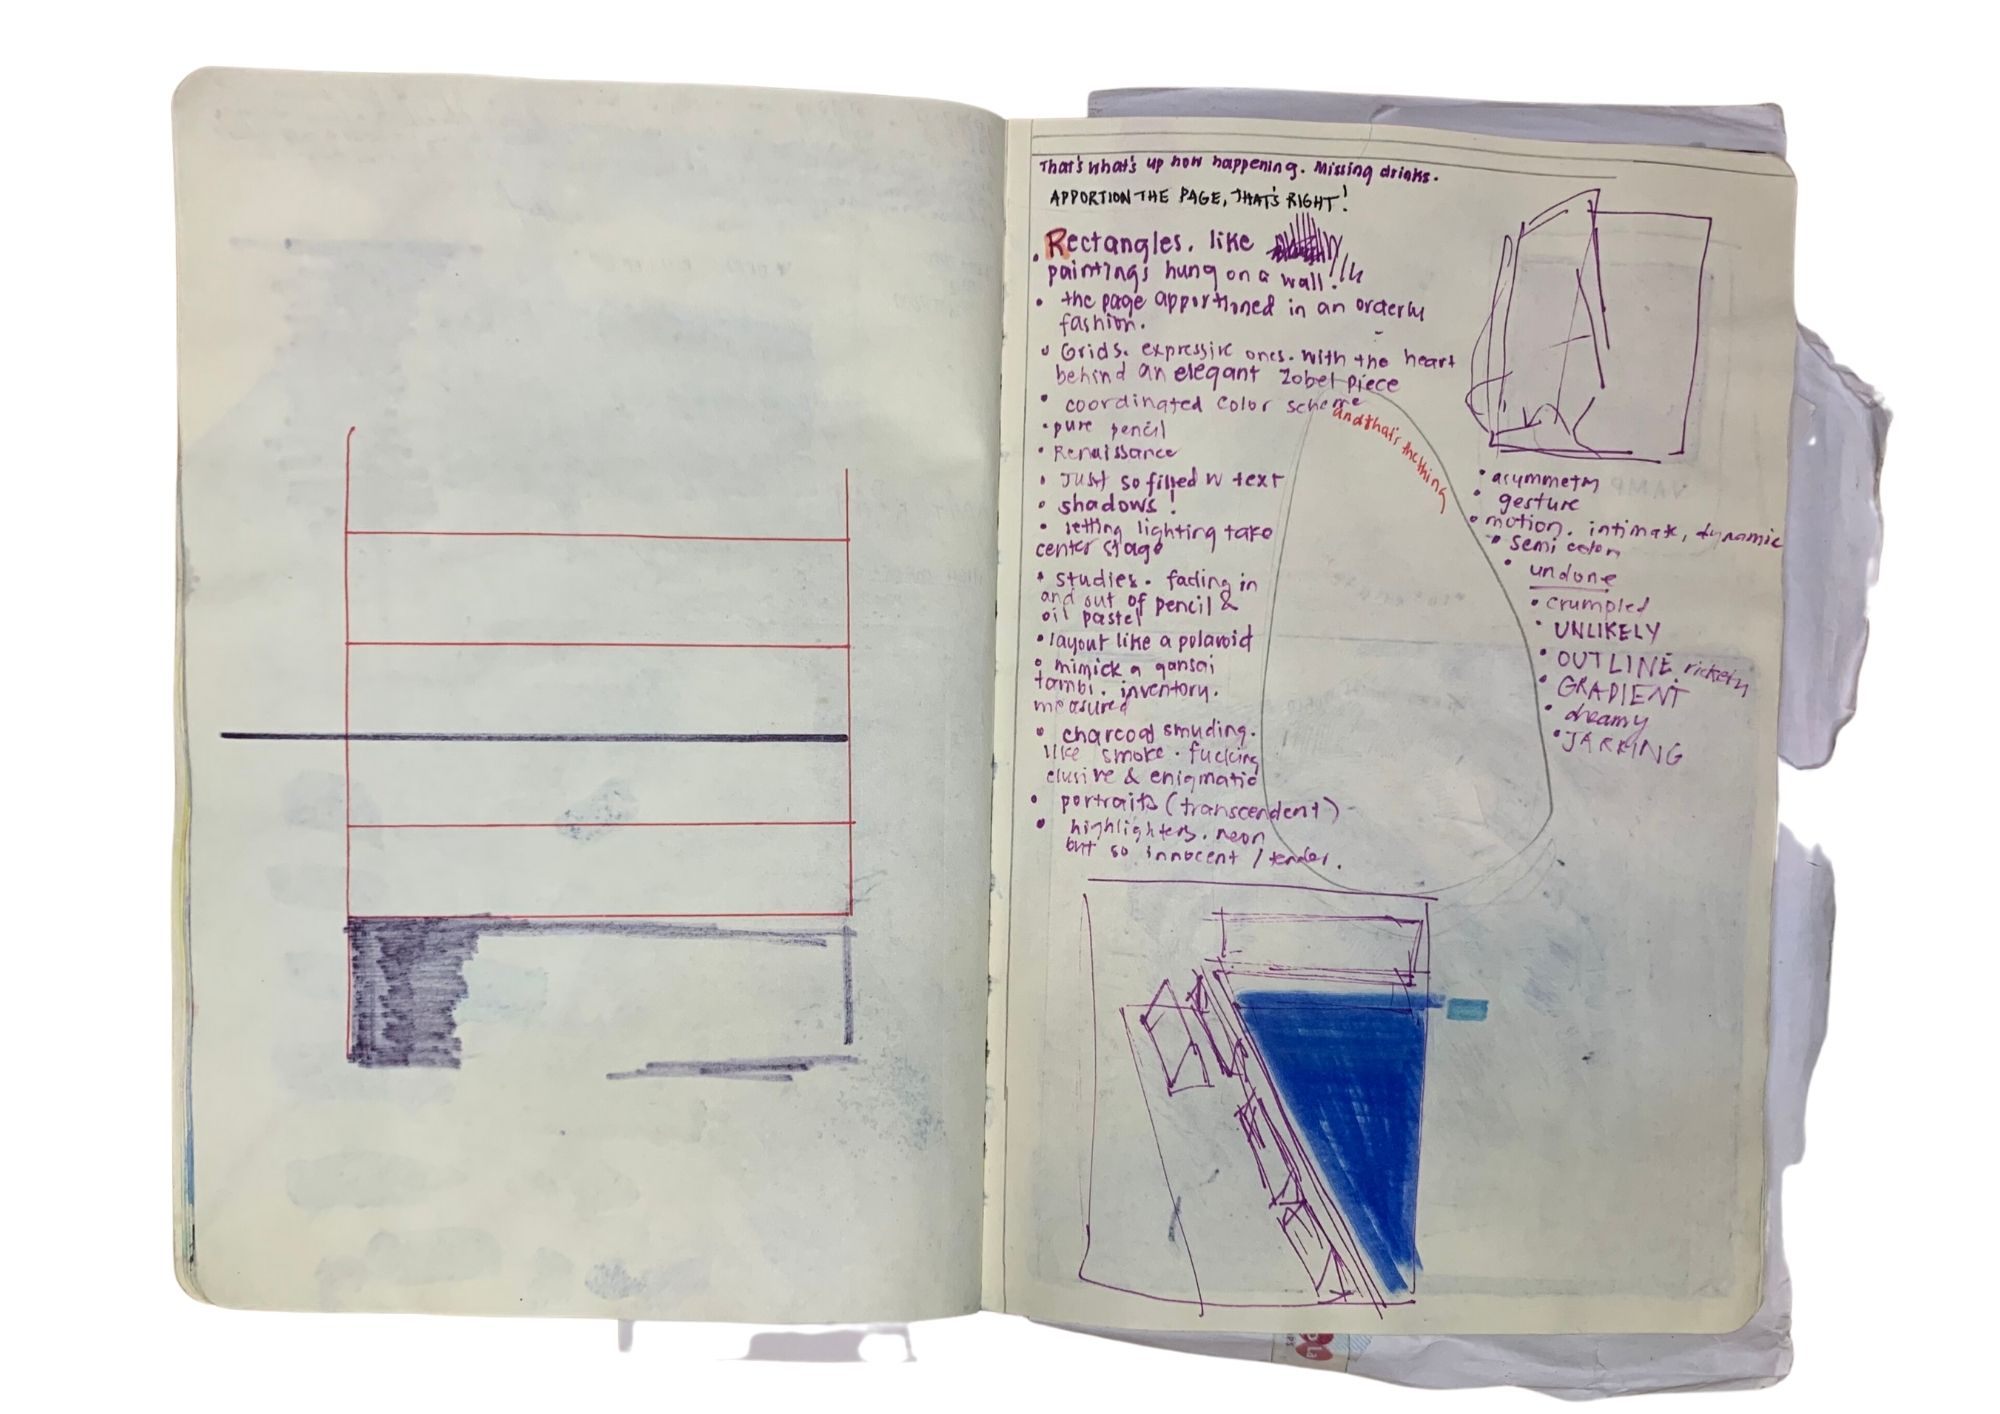 That's what's up now happening. Missing drinks.
APPORTION THE PAGE, THAT'S RIGHT!
• Rectangles. like
paintings hung on a wall!!!
• the page apportioned in an orderly
fashion.
• Grids. expressive ones. with the heart
behind an elegant Zobel piece
• coordinated color scheme
• pure pencil
• Renaissance
• Just so filled w text
• shadows!
• letting lighting take
center stage
• studies. fading in
and out of pencil &
oil pastel
• layout like a polaroid
• mimick a gansai
tambi. inventory.
measured
• charcoal smuding.
like smoke. fucking
elusive & enigmatic
• portraits (transcendent)
• highlighters. neon
but so innocent / tender.
and that's the thing
• asymmetry
• gesture
• motion. intimate, dynamic
• semi colon
• undone
• crumpled
• UNLIKELY
• OUTLINE. rickety
• GRADIENT
• dreamy
• JARRING